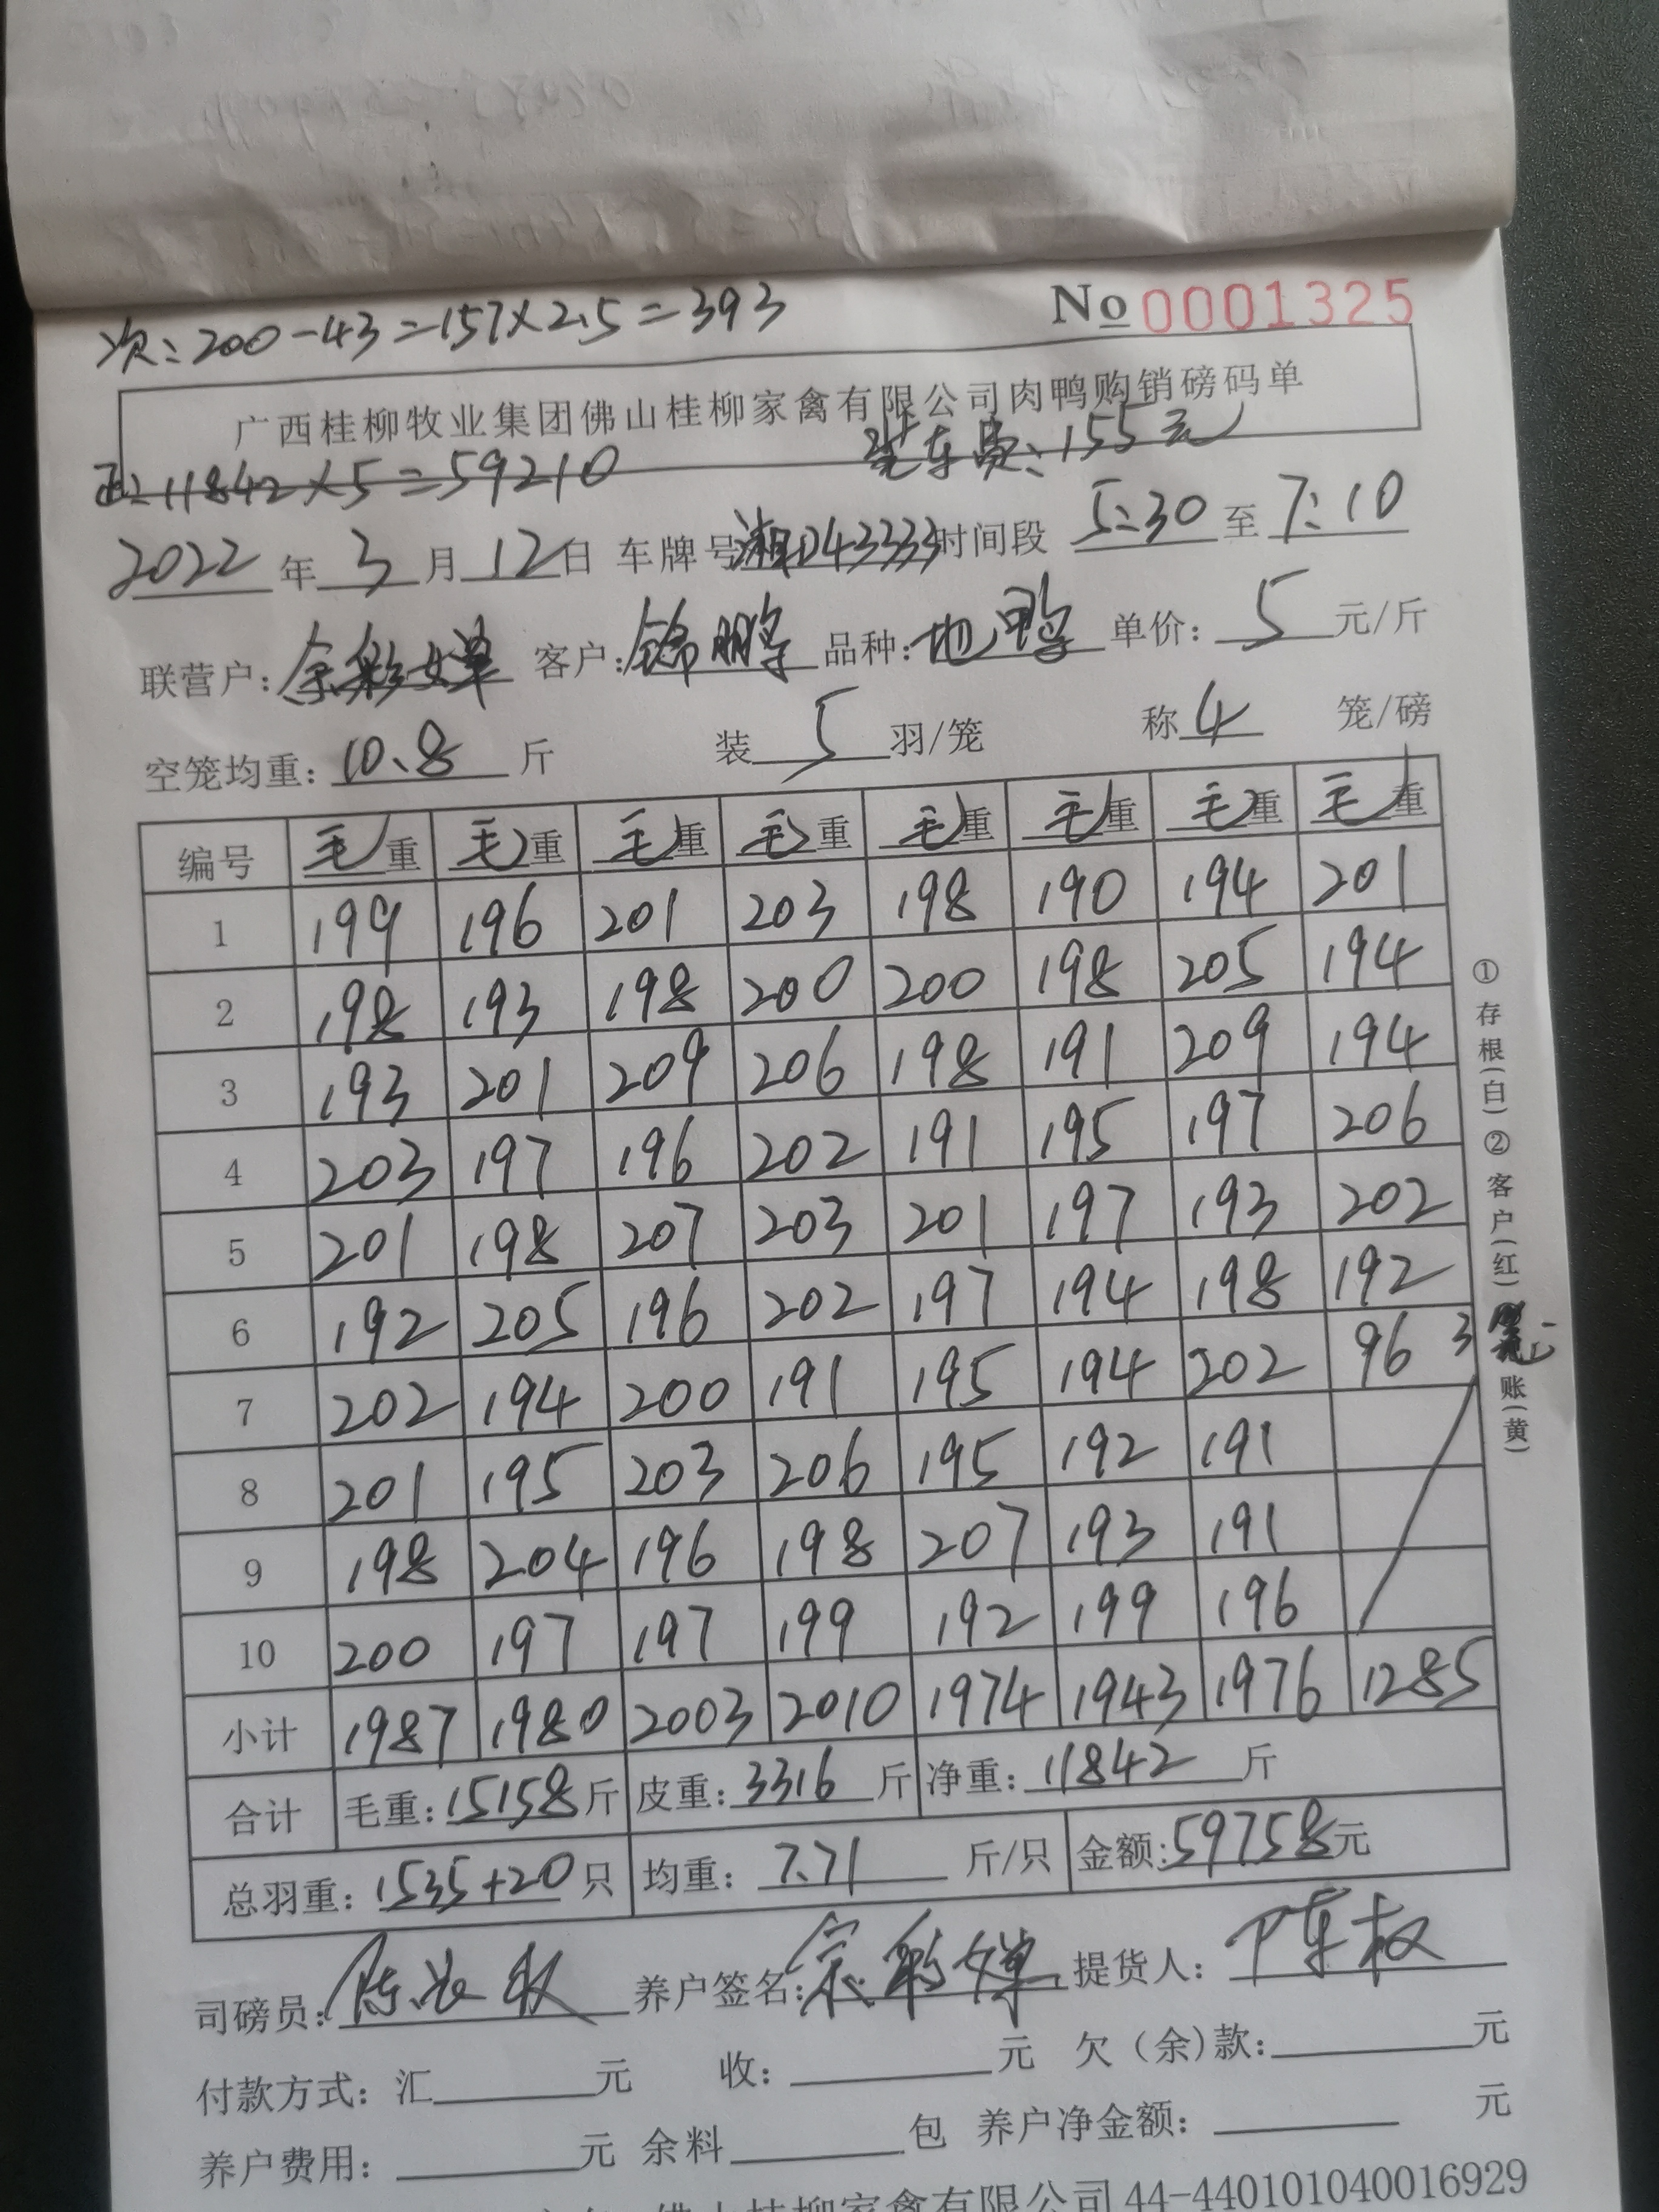 次:200-43=157×2.5=393
No 0001325
广西桂柳牧业集团佛山桂柳家禽有限公司肉鸭购销磅码单
正:11842×5=59210 装车费:155元
2022年3月12日 车牌号湘D43333时间段 5:30至7:10
联营户:余彩婵 客户:锦鹏 品种:地鸭 单价:5元/斤
空笼均重:10.8斤 装5羽/笼 称4笼/磅
编号 毛重 毛重 毛重 毛重 毛重 毛重 毛重 毛重
1 199 196 201 203 198 190 194 201
2 198 193 198 200 200 198 205 194
3 193 201 209 206 198 191 209 194
4 203 197 196 202 191 195 197 206
5 201 198 207 203 201 197 193 202
6 192 205 196 202 197 194 198 192
7 202 194 200 191 195 194 202 96 3笼
8 201 195 203 206 195 192 191
9 198 204 196 198 207 193 191
10 200 197 197 199 192 199 196
小计 1987 1980 2003 2010 1974 1943 1976 1285
合计 毛重:15158斤 皮重:3316斤 净重:11842斤
总羽重:1535+20只 均重:7.71斤/只 金额:59758元
司磅员: 养户签名:余彩婵 提货人:
付款方式:汇 元 收: 元 欠(余)款: 元
养户费用: 元 余料 包 养户净金额: 元
佛山桂柳家禽有限公司44-440101040016929
①存根(白)②客户(红) 账(黄)